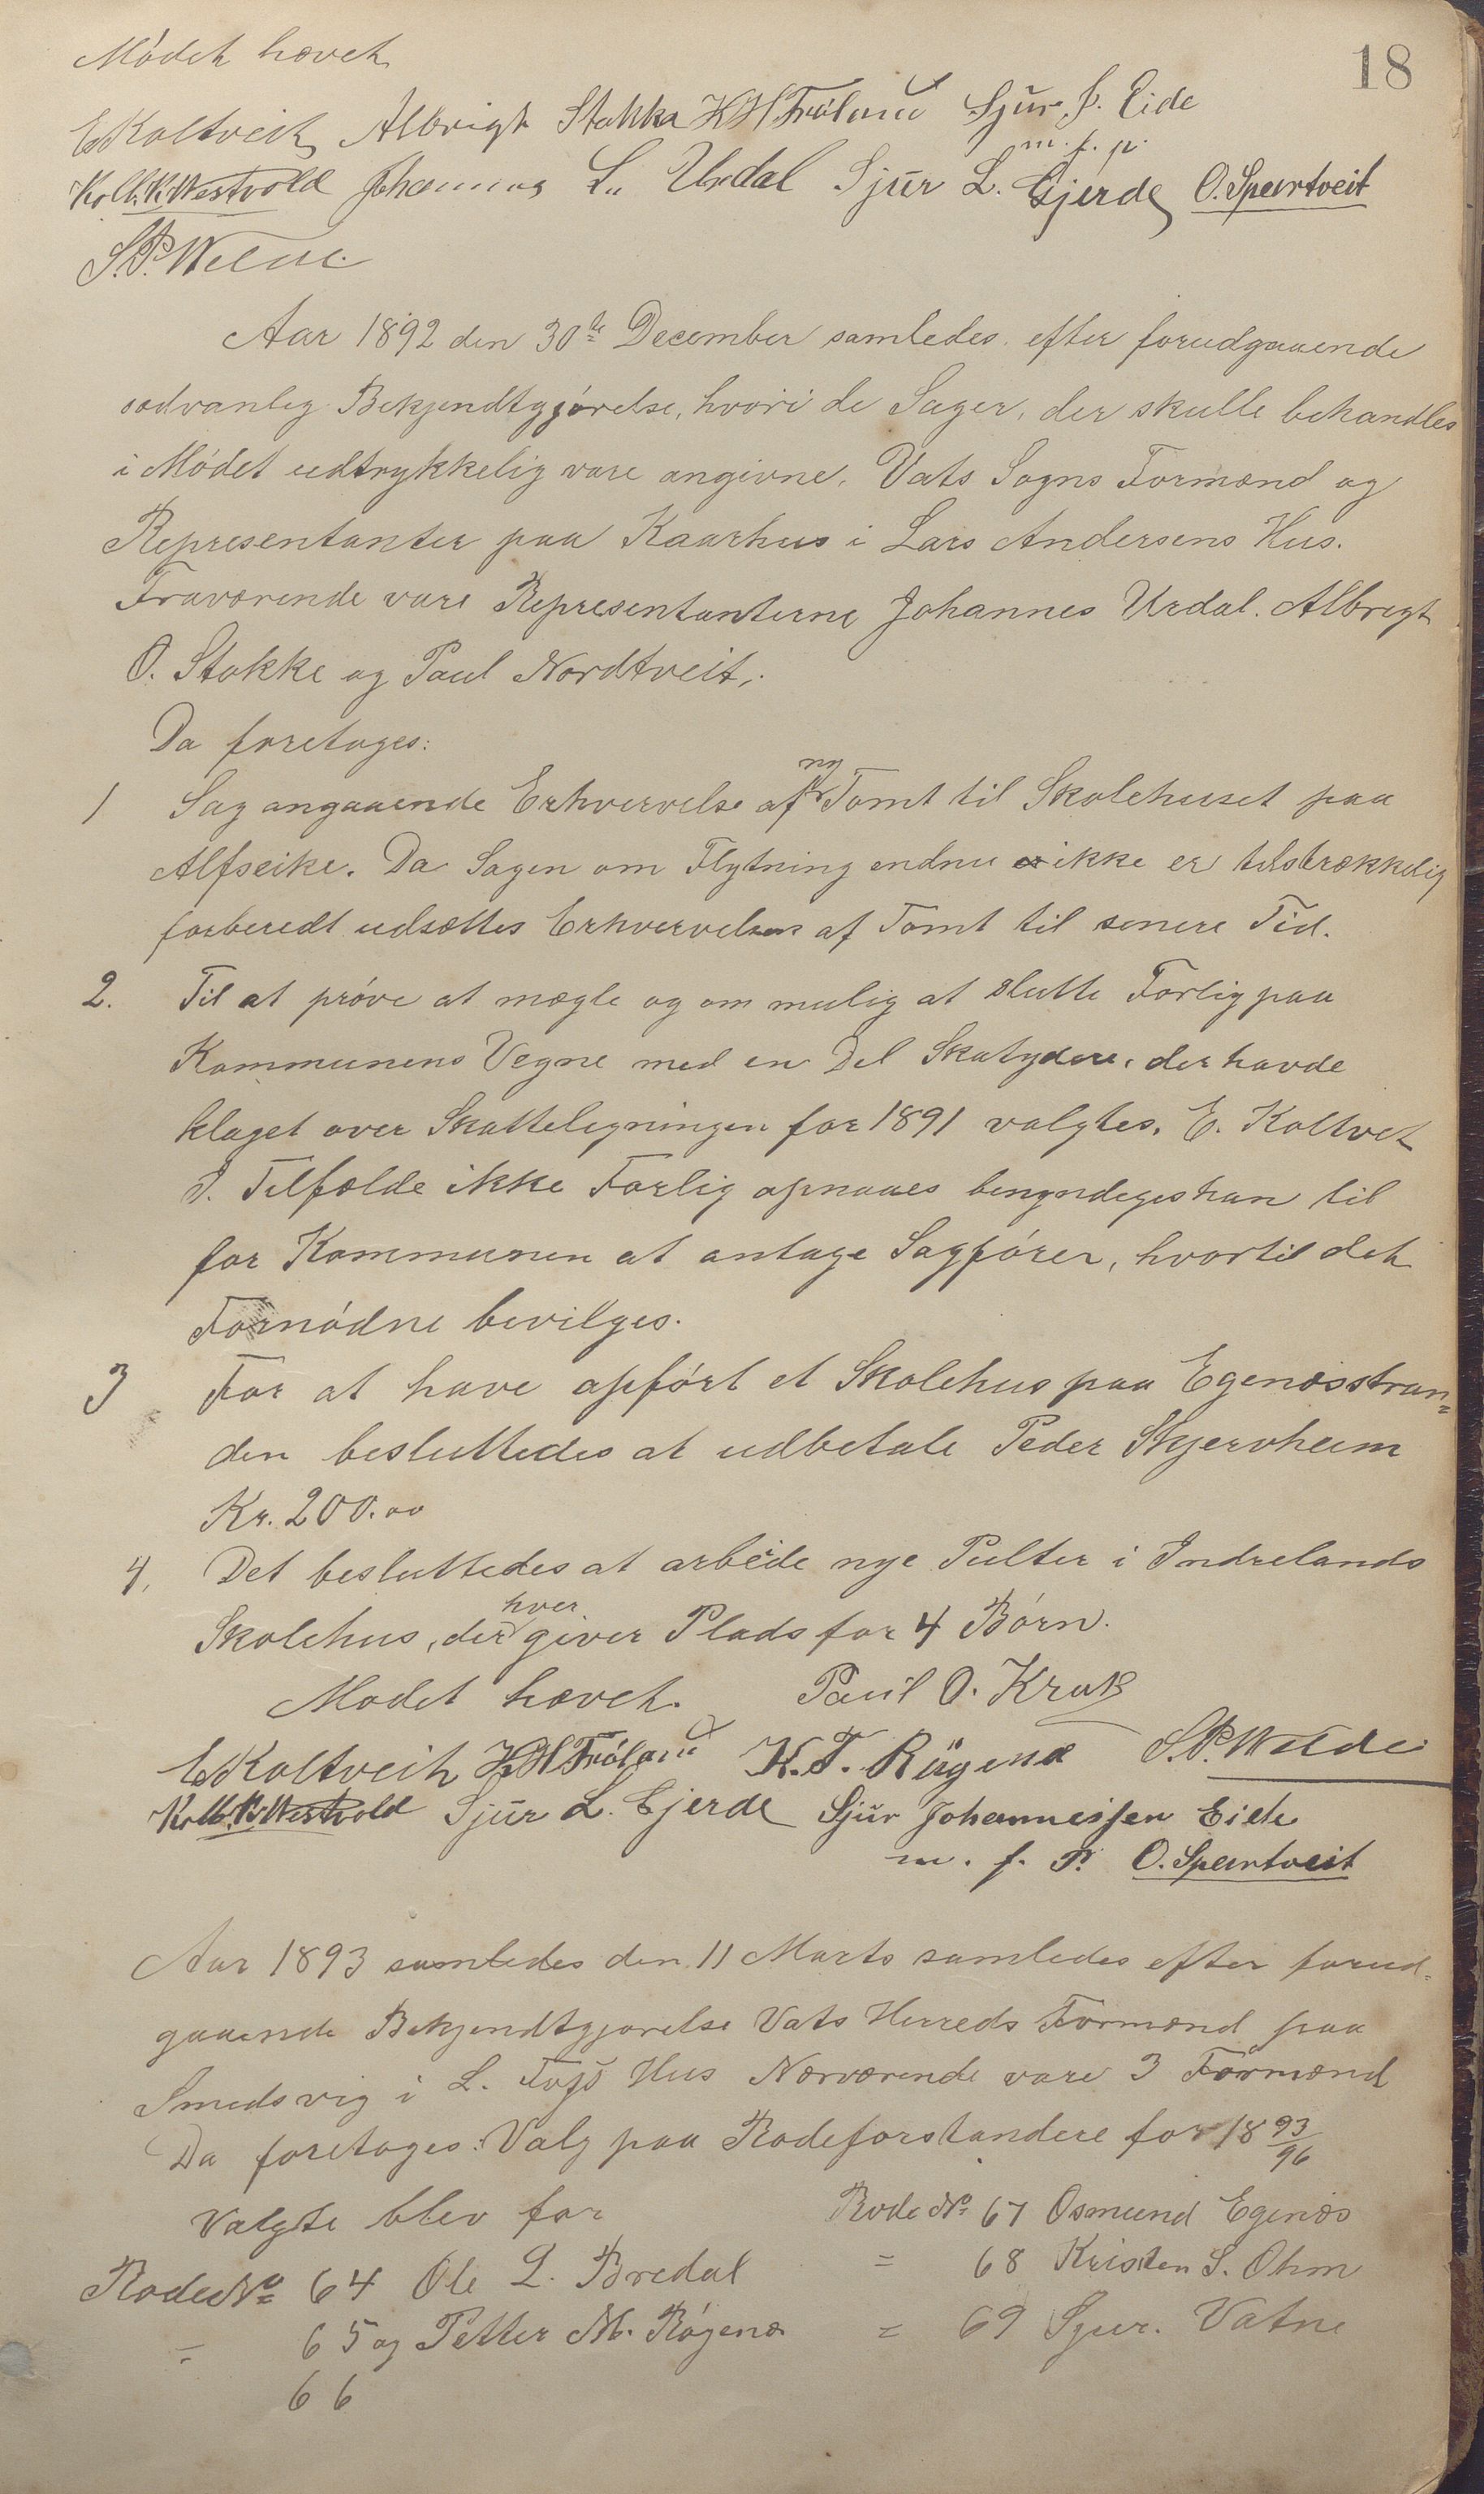 18
Mødet hævet
E Koltveit Albrigt Stakka H H Frøland Sjur J. Eide
m. f. p.
Kolb. K. Westvold Johannes L. Urdal Sjur L. Gjerde O. Spertveit
S. P. Welde
Aar 1892 den 30te December samledes efter forudgaaende
sædvanlig Bekjendtgjørelse, hvori de Sager, der skulle behandles
i Mødet udtrykkelig vare angivne, Vats Sogns Formænd og
Representanter paa Kaarhus i Lars Andersens Hus.
Fraværende vare Representanterne Johannes Urdal. Albregt
O. Stokke og Paul Nordtveit,.
Da foretoges:
1 Sag angaaende Erhvervelse af ny Tomt til Skolehuset paa
Alfseike. Da Sagen om Flytning endnu ikke er tilstrækkelig
forberedt udsættes Erhvervelsen af Tomt til senere Tid.
2. Til at prøve at mægle og om mulig at slutte Forlig paa
Kommunens Vegne med en Del Skatydere, der havde
klaget over Skatteligningen for 1891 valgtes, E. Koltvet
I. Tilfælde ikke Forlig opnaaes bemyndiges han til
for Kommunen at antage Sagfører, hvortil det
Fornødne bevilges.
3 For at have opført et Skolehus paa Egenæsstran=
den besluttedes at udbetale Peder Skjerveheim
Kr. 200.00
4, Det besluttedes at arbeide nye Pulter i Indrelands
Skolehus, der hver giver Plads for 4 Børn.
Mødet hævet. Paul O. Krak
E Koltveit H H Frøland K. T. Rügenæ S. P. Welde
Kolb. K. Westvold Sjur L. Gjerde Sjur Johannessen Eide
m. f. P. O. Spertveit
Aar 1893 samledes den 11 Marts samledes efter forud=
gaaende Bekjendtgjørelse Vats Herreds Formænd paa
Smedsvig i L. Hus Nærværende vare 3 Formænd
Da foretoges: Valg paa Rodeforstandere for 1893/96
Valgte blev for
Rode No 64 Ole L. Bredal
= 65 og Petter M. Røgenæ
66
Rode No 67 Osmund Egenæs
= 68 Kristen S. Ohm
= 69 Sjur. Vatne